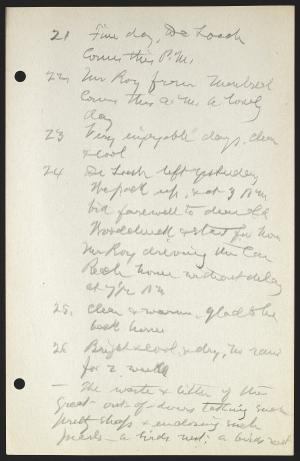 21 Fine day, De Loach
Comes this P.M.
22, Mr Roy from Montreal
Comes this a.m. a lovely
day
23 Very enjoyable days, clear
& cool
24 De Loach left yesterday
We pack up, & at 3 P.M.
bid farewell to dear old
Woodchuck & start for home
Mr Roy driving the Car
Reach home without delay
at 7 P.M
25. Clear & warm, glad to be
back home
26 Bright & cool, & dry, no rain
for 2 weeks
— The waste & litter of the
great out-of-doors taking such
pretty shapes & enclosing such
pearls — a birds nest: a birds nest